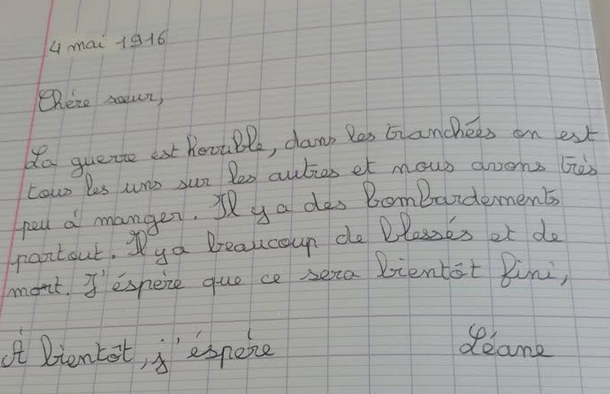 4 mai 1916
Chère sœur,
La guerre est horrible, dans les tranchées on est
tous les uns sur les autres et nous avons très
peu à manger. Il y a des bombardements
partout. Il y a beaucoup de blessés et de
mort. J'éspère que ce sera bientôt fini,
À bientôt, j'éspère Léane